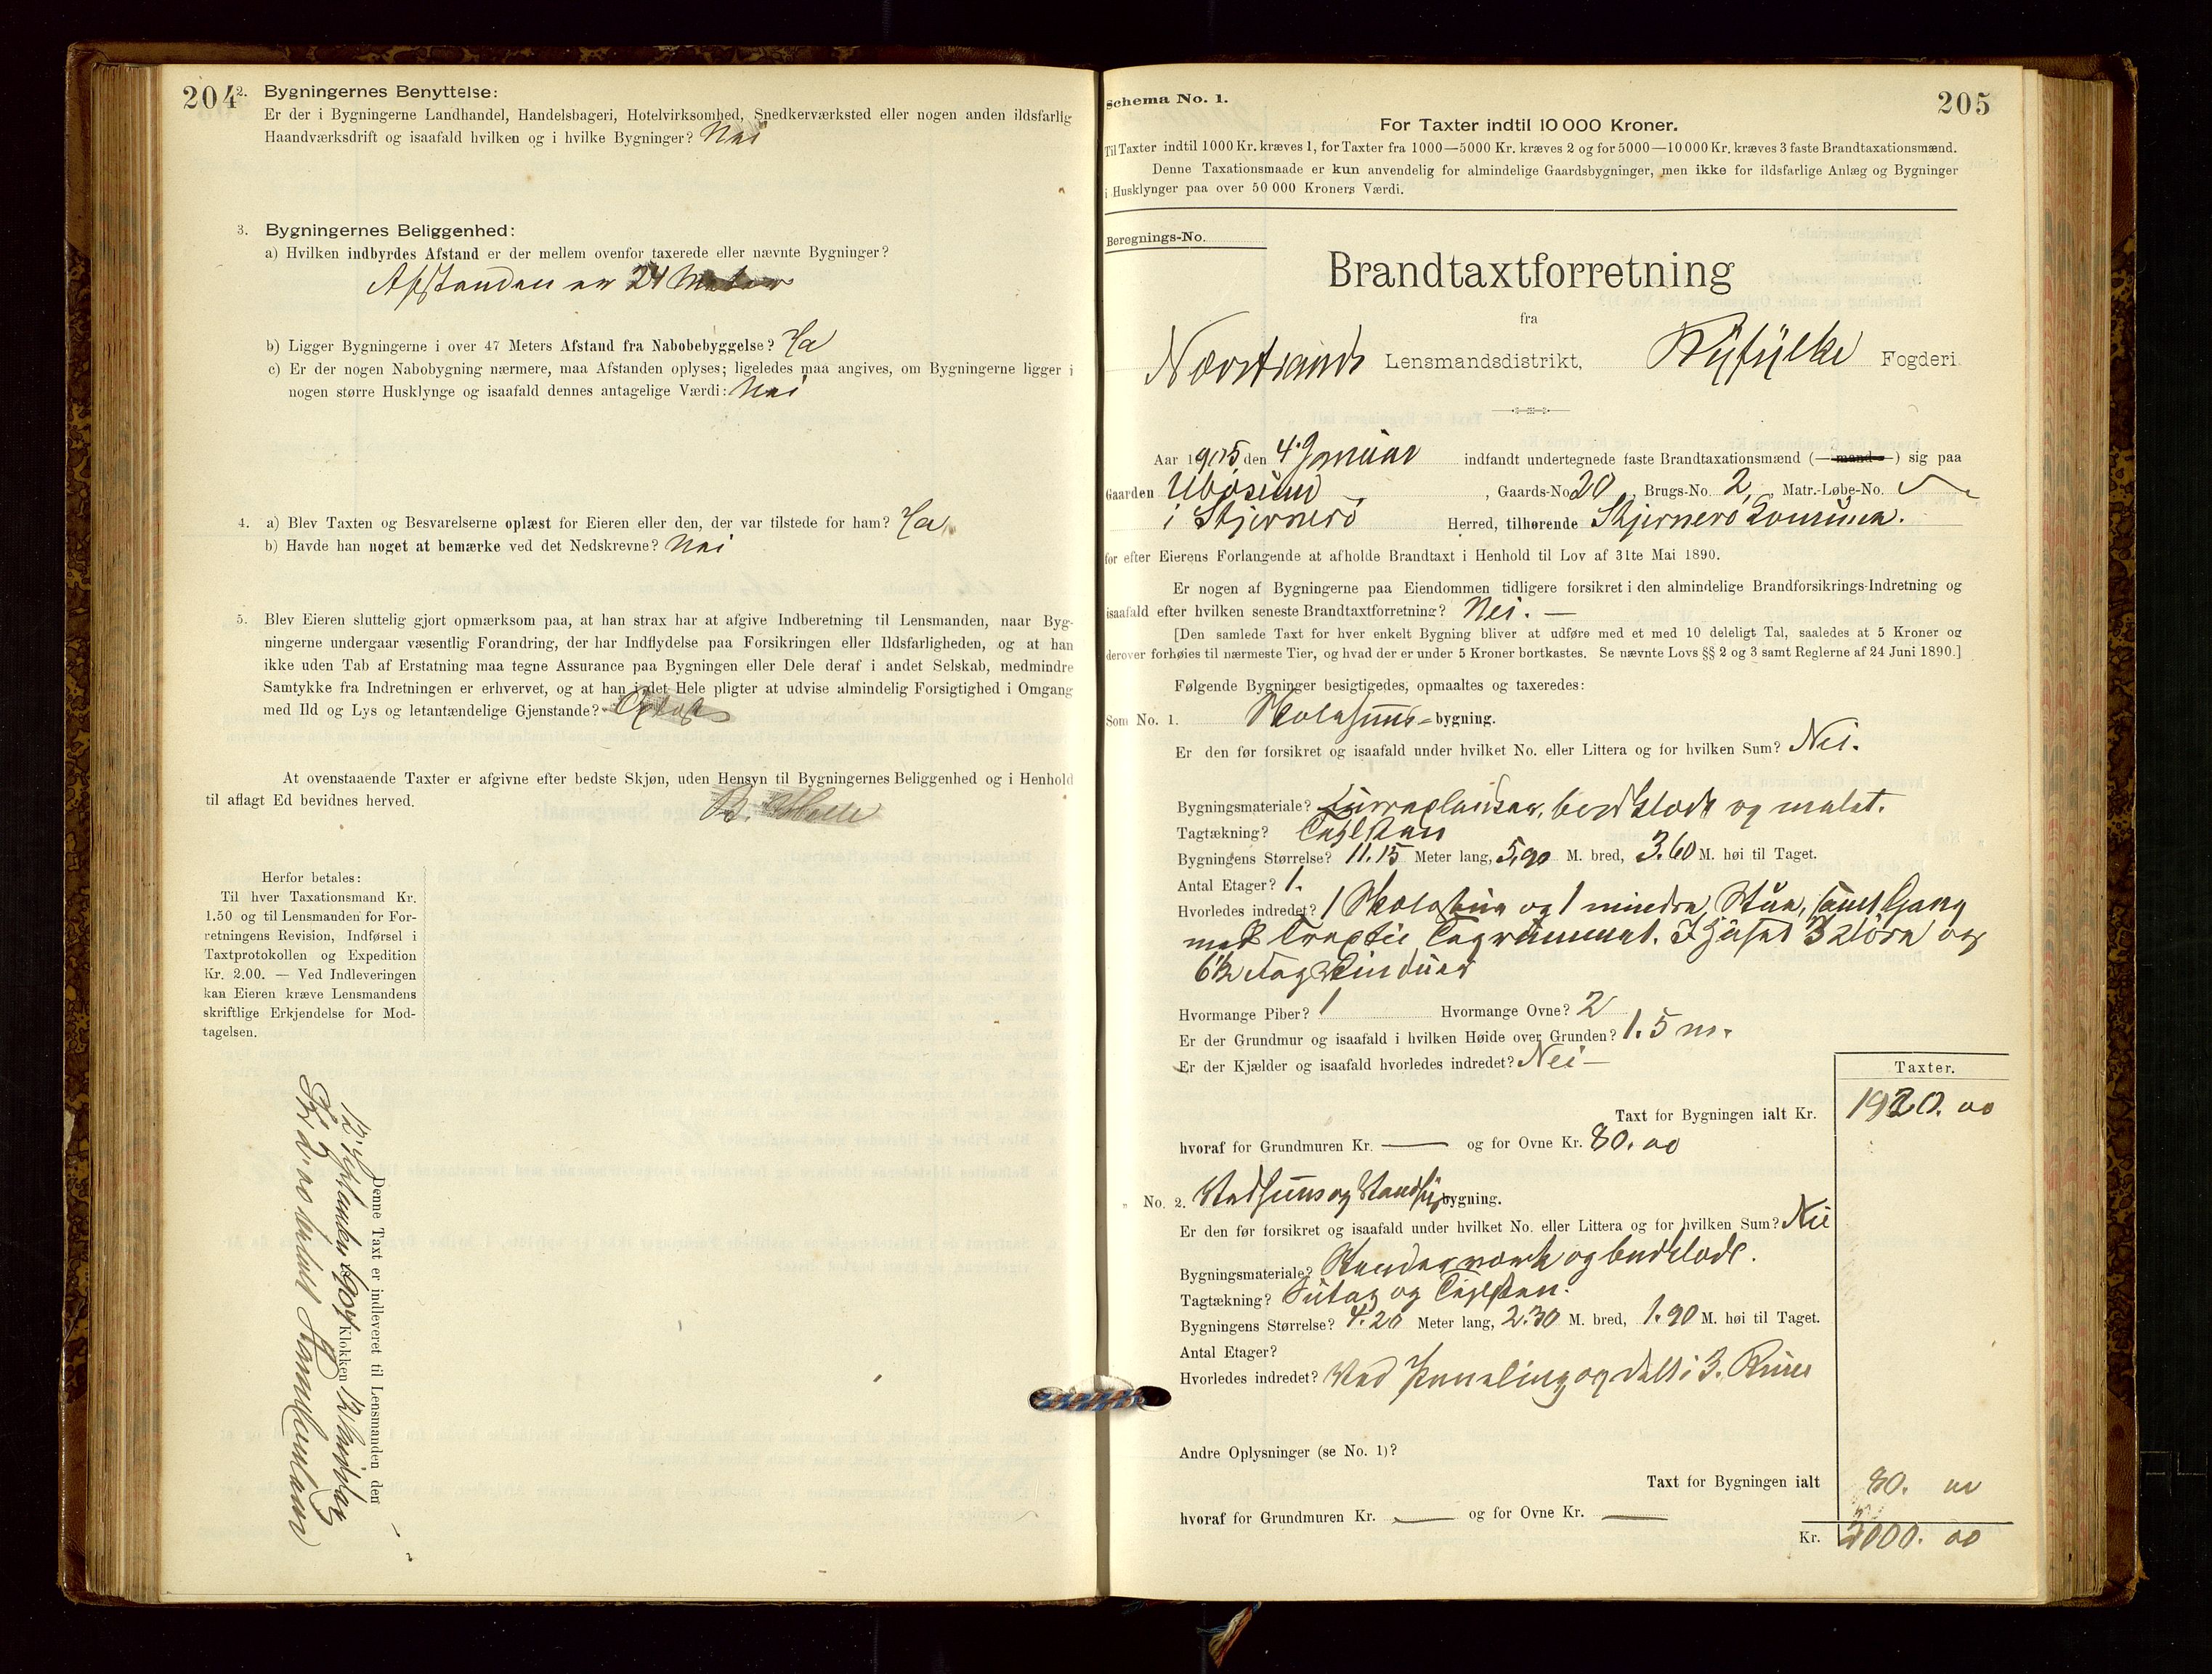 204
2. Bygningernes Benyttelse:
Er der i Bygningerne Landhandel, Handelsbageri, Hotelvirksomhed, Snedkerværksted eller nogen anden ildsfarlig
Haandværksdrift og isaafald hvilken og i hvilke Bygninger? Nei
3. Bygningernes Beliggenhed:
a) Hvilken indbyrdes Afstand er der mellem ovenfor taxerede eller nævnte Bygninger?
Afstanden er 24 Meter
b) Ligger Bygningerne i over 47 Meters Afstand fra Nabobebyggelse? Ja
c) Er der nogen Nabobygning nærmere, maa Afstanden oplyses; ligeledes maa angives, om Bygningerne ligger i
nogen større Husklynge og isaafald dennes antagelige Værdi: Nei
4. a) Blev Taxten og Besvarelserne oplæst for Eieren eller den, der var tilstede for ham? Ja
b) Havde han noget at bemærke ved det Nedskrevne? Nei
5. Blev Eieren sluttelig gjort opmærksom paa, at han strax har at afgive Indberetning til Lensmanden, naar Byg-
ningerne undergaar væsentlig Forandring, der har Indflydelse paa Forsikringen eller Ildsfarligheden, og at han
ikke uden Tab af Erstatning maa tegne Assurance paa Bygningen eller Dele deraf i andet Selskab, medmindre
Samtykke fra Indretningen er erhvervet, og at han i det Hele pligter at udvise almindelig Forsigtighed i Omgang
med Ild og Lys og letantændelige Gjenstande?
At ovenstaaende Taxter er afgivne efter bedste Skjøn, uden Hensyn til Bygningernes Beliggenhed og i Henhold
til aflagt Ed bevidnes herved.
Herfor betales:
Til hver Taxationsmand Kr.
1.50 og til Lensmanden for For-
retningens Revision, Indførsel i
Taxtprotokollen og Expedition
Kr. 2.00. — Ved Indleveringen
kan Eieren kræve Lensmandens
skriftlige Erkjendelse for Mod-
tagelsen.
Denne Taxt er indleveret til Lensmanden den
Klokken 12 middag
Schema No. 1.
205
For Taxter indtil 10 000 Kroner.
Til Taxter indtil 1000 Kr. kræves 1, for Taxter fra 1000—5000 Kr. kræves 2 og for 5000—10 000 Kr. kræves 3 faste Brandtaxationsmænd.
Denne Taxationsmaade er kun anvendelig for almindelige Gaardsbygninger, men ikke for ildsfarlige Anlæg og Bygninger
i Husklynger paa over 50 000 Kroners Værdi.
Beregnings-No.
Brandtaxtforretning
fra
Nærstrands Lensmandsdistrikt, Ryfylke Fogderi.
Aar 1905 den 4. Januar indfandt undertegnede faste Brandtaxationsmænd (—mand—) sig paa
Gaarden , Gaards-No 20 Brugs-No. 2, Matr.-Løbe-No.
i Skjernerø Herred, tilhørende Skjernerø Comune.
for efter Eierens Forlangende at afholde Brandtaxt i Henhold til Lov af 31te Mai 1890.
Er nogen af Bygningerne paa Eiendommen tidligere forsikret i den almindelige Brandforsikrings-Indretning og
isaafald efter hvilken seneste Brandtaxtforretning? Nei. —
[Den samlede Taxt for hver enkelt Bygning bliver at udføre med et med 10 deleligt Tal, saaledes at 5 Kroner og
derover forhøies til nærmeste Tier, og hvad der er under 5 Kroner bortkastes. Se nævnte Lovs §§ 2 og 3 samt Reglerne af 24 Juni 1890.]
Følgende Bygninger besigtigedes, opmaaltes og taxeredes:
Som No. 1. Skolehuus-bygning.
Er den før forsikret og isaafald under hvilket No. eller Littera og for hvilken Sum? Nei.
Bygningsmateriale? bordklædt og malet.
Tagtækning? Taglsten
Bygningens Størrelse? 11.15 Meter lang, 5,90 M. bred, 3.60 M. høi til Taget.
Antal Etager? 1.
Hvorledes indredet? 1 Skolestue og 1 mindre Stue, samt Gang
med Trap til Tagrummet. I Huset 3 Døre og
6 1/2 Fags Vinduer
Hvormange Piber? 1 Hvormange Ovne? 2
Er der Grundmur og isaafald i hvilken Høide over Grunden? 1.5 m.
Er der Kjælder og isaafald hvorledes indredet? Nei —
Taxter.
Taxt for Bygningen ialt Kr. 1920. 00
hvoraf for Grundmuren Kr. — og for Ovne Kr. 80. 00
" No. 2. Vedhuus og bygning.
Er den før forsikret og isaafald under hvilket No. eller Littera og for hvilken Sum? Nei
Bygningsmateriale? Stenderværk og bordklædt.
Tagtækning? Sutag og Taglsten.
Bygningens Størrelse? 4.20 Meter lang, 2.30 M. bred, 1.90 M. høi til Taget.
Antal Etager?
Hvorledes indredet? Med Paneling og delt i 3. Rum
Andre Oplysninger (se No. 1)?
Taxt for Bygningen ialt 80. 00
hvoraf for Grundmuren Kr. — og for Ovne Kr. —
Kr. 2000. 00